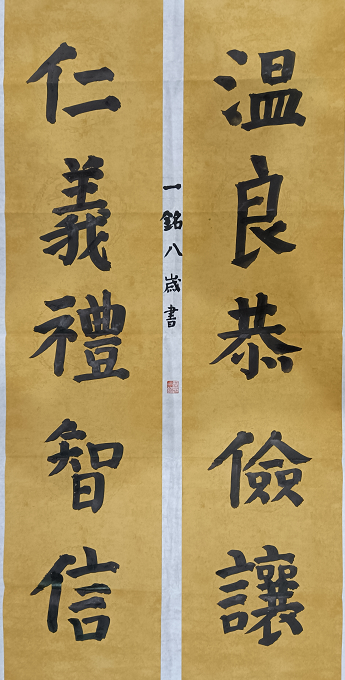 温良恭儉讓
一銘八歲書
仁義禮智信